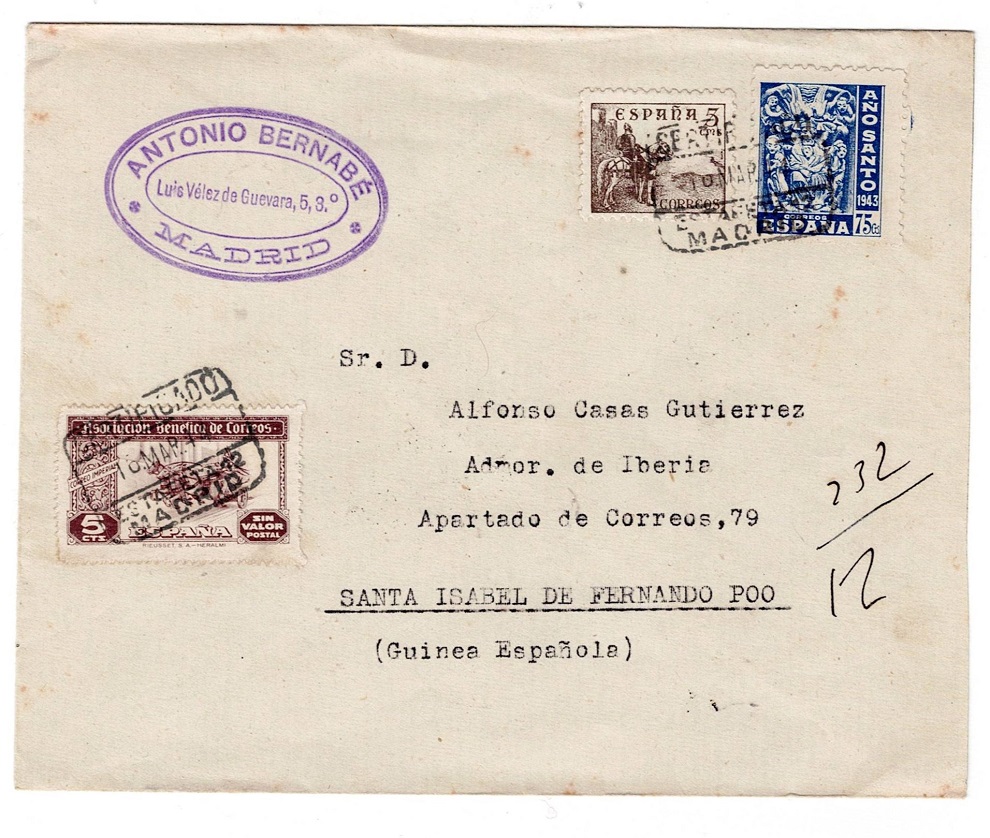 ANTONIO BERNABÉ
Luis Vélez de Guevara, 5, 3.º
MADRID
ESPAÑA 5
cts
CORREOS
AÑO SANTO
1943
CORREOS
ESPAÑA 75 Cs
MAR
ESTAFETA 12
MADRID
Sr. D.
Alfonso Casas Gutierrez
Admor. de Iberia
Apartado de Correos,79
SANTA ISABEL DE FERNANDO POO
(Guinea Española)
232
12
CERTIFICADO
MAR
ESTAFETA 12
MADRID
Asociación Benéfica de Correos
CORREO IMPERIAL
5
CTS
ESPAÑA
SIN
VALOR
POSTAL
RIEUSSET, S. A.-